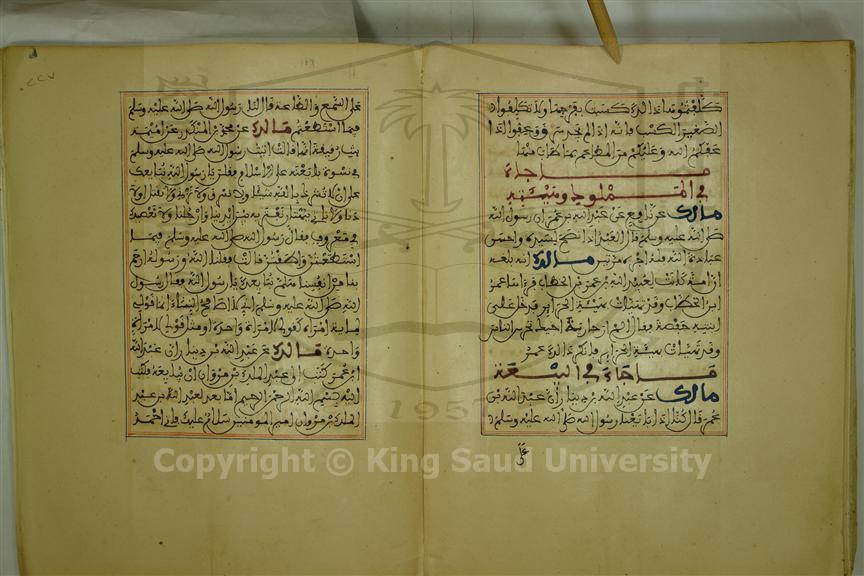 تكلفتموها ذالك كسبت بفرجها ولا تكلفوا
الصغير الكسب فانه اذا لم يجد سرق وعفوا اذا
عفكم الله وعليكم من المطاعم بما طاب منها
ما جاء
في المملوك وهيئته
مالك عن نافع عن عبد الله بن عمر ان رسول الله
صلى الله عليه وسلم قال العبد اذا نصح لسيده واحسن
عبادة الله فله اجره مرتين مالك انه بلغه
ان امة كانت لعبد الله بن عمر بن الخطاب فرءاها عمر
ابن الخطاب وقد تهيات بهيئة الحراير فدخل على
ابنته حفصة فقال الم ار جارية اخيك تجوس الناس
وقد تهيات بهيئة الحراير فانكر ذالك عمر
ما جاء في البيعة
مالك عن عبد الله بن دينار ان عبد الله بن
عمر قال كنا اذا بايعنا رسول الله صلى الله عليه وسلم
على
على السمع والطاعة قال لنا رسول الله صلى الله عليه وسلم
فيما استطعتم مالك عن محمد بن المنكدر عن اميمة
بنت رقيقة انها قالت اتيت رسول الله صلى الله عليه وسلم
في نسوة بايعنه على الاسلام فقلن يا رسول الله نبايعك
على ان لا نشرك بالله شيئا ولا نسرق ولا نزني ولا نقتل اولا
دنا ولا ناتي ببهتان نفتريه بين ايدينا وارجلنا ولا نعصيك
في معروف فقال رسول الله صلى الله عليه وسلم فيما
استطعتن واطقتن قالت فقلنا الله ورسوله ارحم
بنا من انفسنا هلم نبايعك يا رسول الله فقال رسول
الله صلى الله عليه وسلم اني لا اصافح النساء انما قولي
لماية امراة كقولي لامراة واحدة او مثل قولي لامراة
واحدة مالك عن عبد الله بن دينار ان عبد الله
ابن عمر كتب الى عبد الملك بن مروان يبايعه فكتب
اليه بسم الله الرحمن الرحيم اما بعد لعبد الله عبد
الملك بن مروان امير المومنين سلام عليك فاني احمد
Copyright © King Saud University
1957